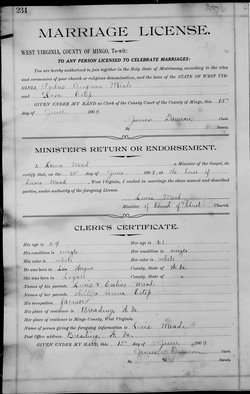 234
MARRIAGE LICENSE.
WEST VIRGINIA, COUNTY OF MINGO, To-wit:
TO ANY PERSON LICENSED TO CELEBRATE MARRIAGES:
You are hereby authorized to join together in the Holy State of Matrimony, according to the rites
and ceremonies of your church or religious denomination, and the laws of the STATE OF WEST VIR-
GINIA, Meade
and Estep
GIVEN UNDER MY HAND as Clerk of the County Court of the County of Mingo, this 15th
day of June 1909
James Damron Clerk.
By
MINISTER'S RETURN OR ENDORSEMENT.
I, Lewis Mead a Minister of the Gospel, do
certify that, on the day of June 1909, at the home of
Lewis Mead, West Virginia, I united in marriage the above named and described
parties, under authority of the foregoing License.
Lewis Mead
Minister of Church of Christ Church.
CLERK'S CERTIFICATE.
His age is 29 Her age is 21
His condition is single Her condition is single
His color is white Her color is white
He was born in Logan County State, W. Va.
She was born in Logan
Names of his parents Mead
Names of her parents Estep
His occupation farmer
His place of residence is Breeding W. Va.
Her place of residence is Mingo County, West Virginia.
Name of person giving the foregoing information is Meade
Post Office Address, Breeding, W. Va.
GIVEN UNDER MY HAND, this 15 day of June 1909
James Damron
Clerk.